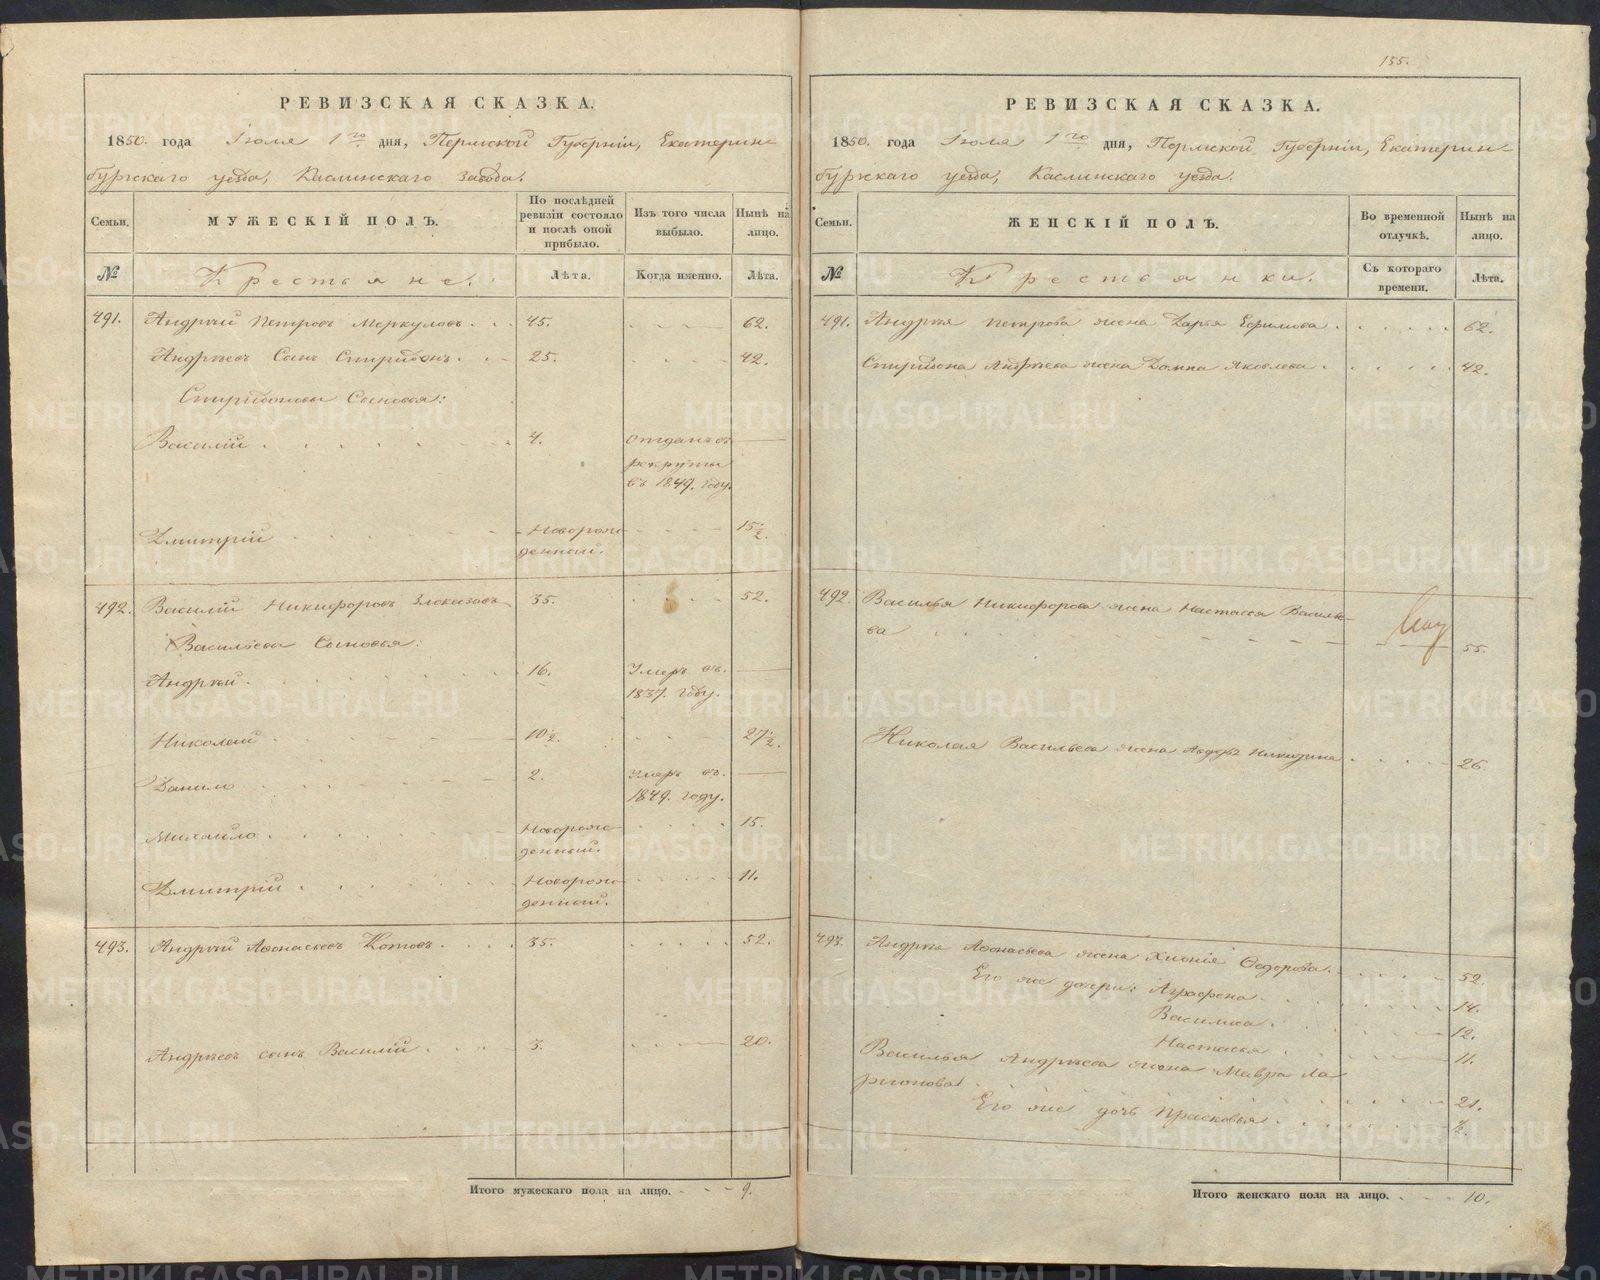 РЕВИЗСКАЯ СКАЗКА.
1850. года Іюля 1го дня, Пермской Губерніи, Екатерин-
бургскаго уезда, Каслинскаго завода.
Семьи.
МУЖЕСКІЙ ПОЛЪ.
По послѣдней ревизіи состояло и послѣ оной прибыло.
Изъ того числа выбыло.
Нынѣ на лицо.
№
Крестьяне.
Лѣта.
Когда именно.
Лѣта.
491. Андрѣй Петровъ Меркуловъ 45. 62.
Андрѣевъ Сынъ Спиридонъ 25. 42.
Спиридоновы Сыновья:
Василій 4. отданъ въ
рекруты
въ 1849. году.
Дмитрій Новорож- 15½.
денный.
492. Василій Никифоровъ Злоказовъ 35. 52.
Васильева Сыновья:
Андрѣй 16. Умеръ въ
1837. году.
Николай 10½. 27½.
Данило 2. Умеръ въ
1849. году.
Михайло Новорож- 15.
денный.
Дмитрій Новорож- 11.
денный.
493. Андрѣй Афонасьевъ Котовъ 35. 52.
Андрѣевъ сынъ Василій 3. 20.
Итого мужескаго пола на лицо. 9.
155.
РЕВИЗСКАЯ СКАЗКА.
1850. года Іюля 1го дня, Пермской Губерніи, Екатерин-
бургскаго уезда, Каслинскаго уезда.
Семьи.
ЖЕНСКІЙ ПОЛЪ.
Во временной отлучкѣ.
Нынѣ на лицо.
№
Крестьянки.
Съ котораго времени.
Лѣта.
491. Андрѣя Петрова жена Дарья Ефимова 62.
Спиридона Андрѣева жена Домна Яковлева 42.
492. Василья Никифорова жена Настасья Василье-
ва 55.
Николая Васильева жена Никитина 26.
493. Андрѣя Афонасьева жена Хионія Ѳедорова 52.
Его же дочери: Аграфена 14.
Василиса 12.
Настасья 11.
Василья Андрѣева жена Мавра Ла
ріонова 21.
Его же дочь Прасковья ½.
Итого женскаго пола на лицо. 10.
METRIKI.GASO-URAL.RU